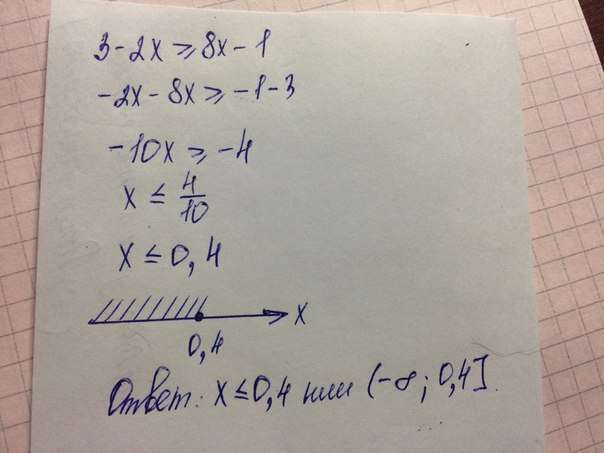 3-2x ≥ 8x-1
-2x-8x ≥ -1-3
-10x ≥ -4
x ≤ 4/10
x ≤ 0,4
x
0,4
Ответ: x ≤ 0,4 или (-∞; 0,4]